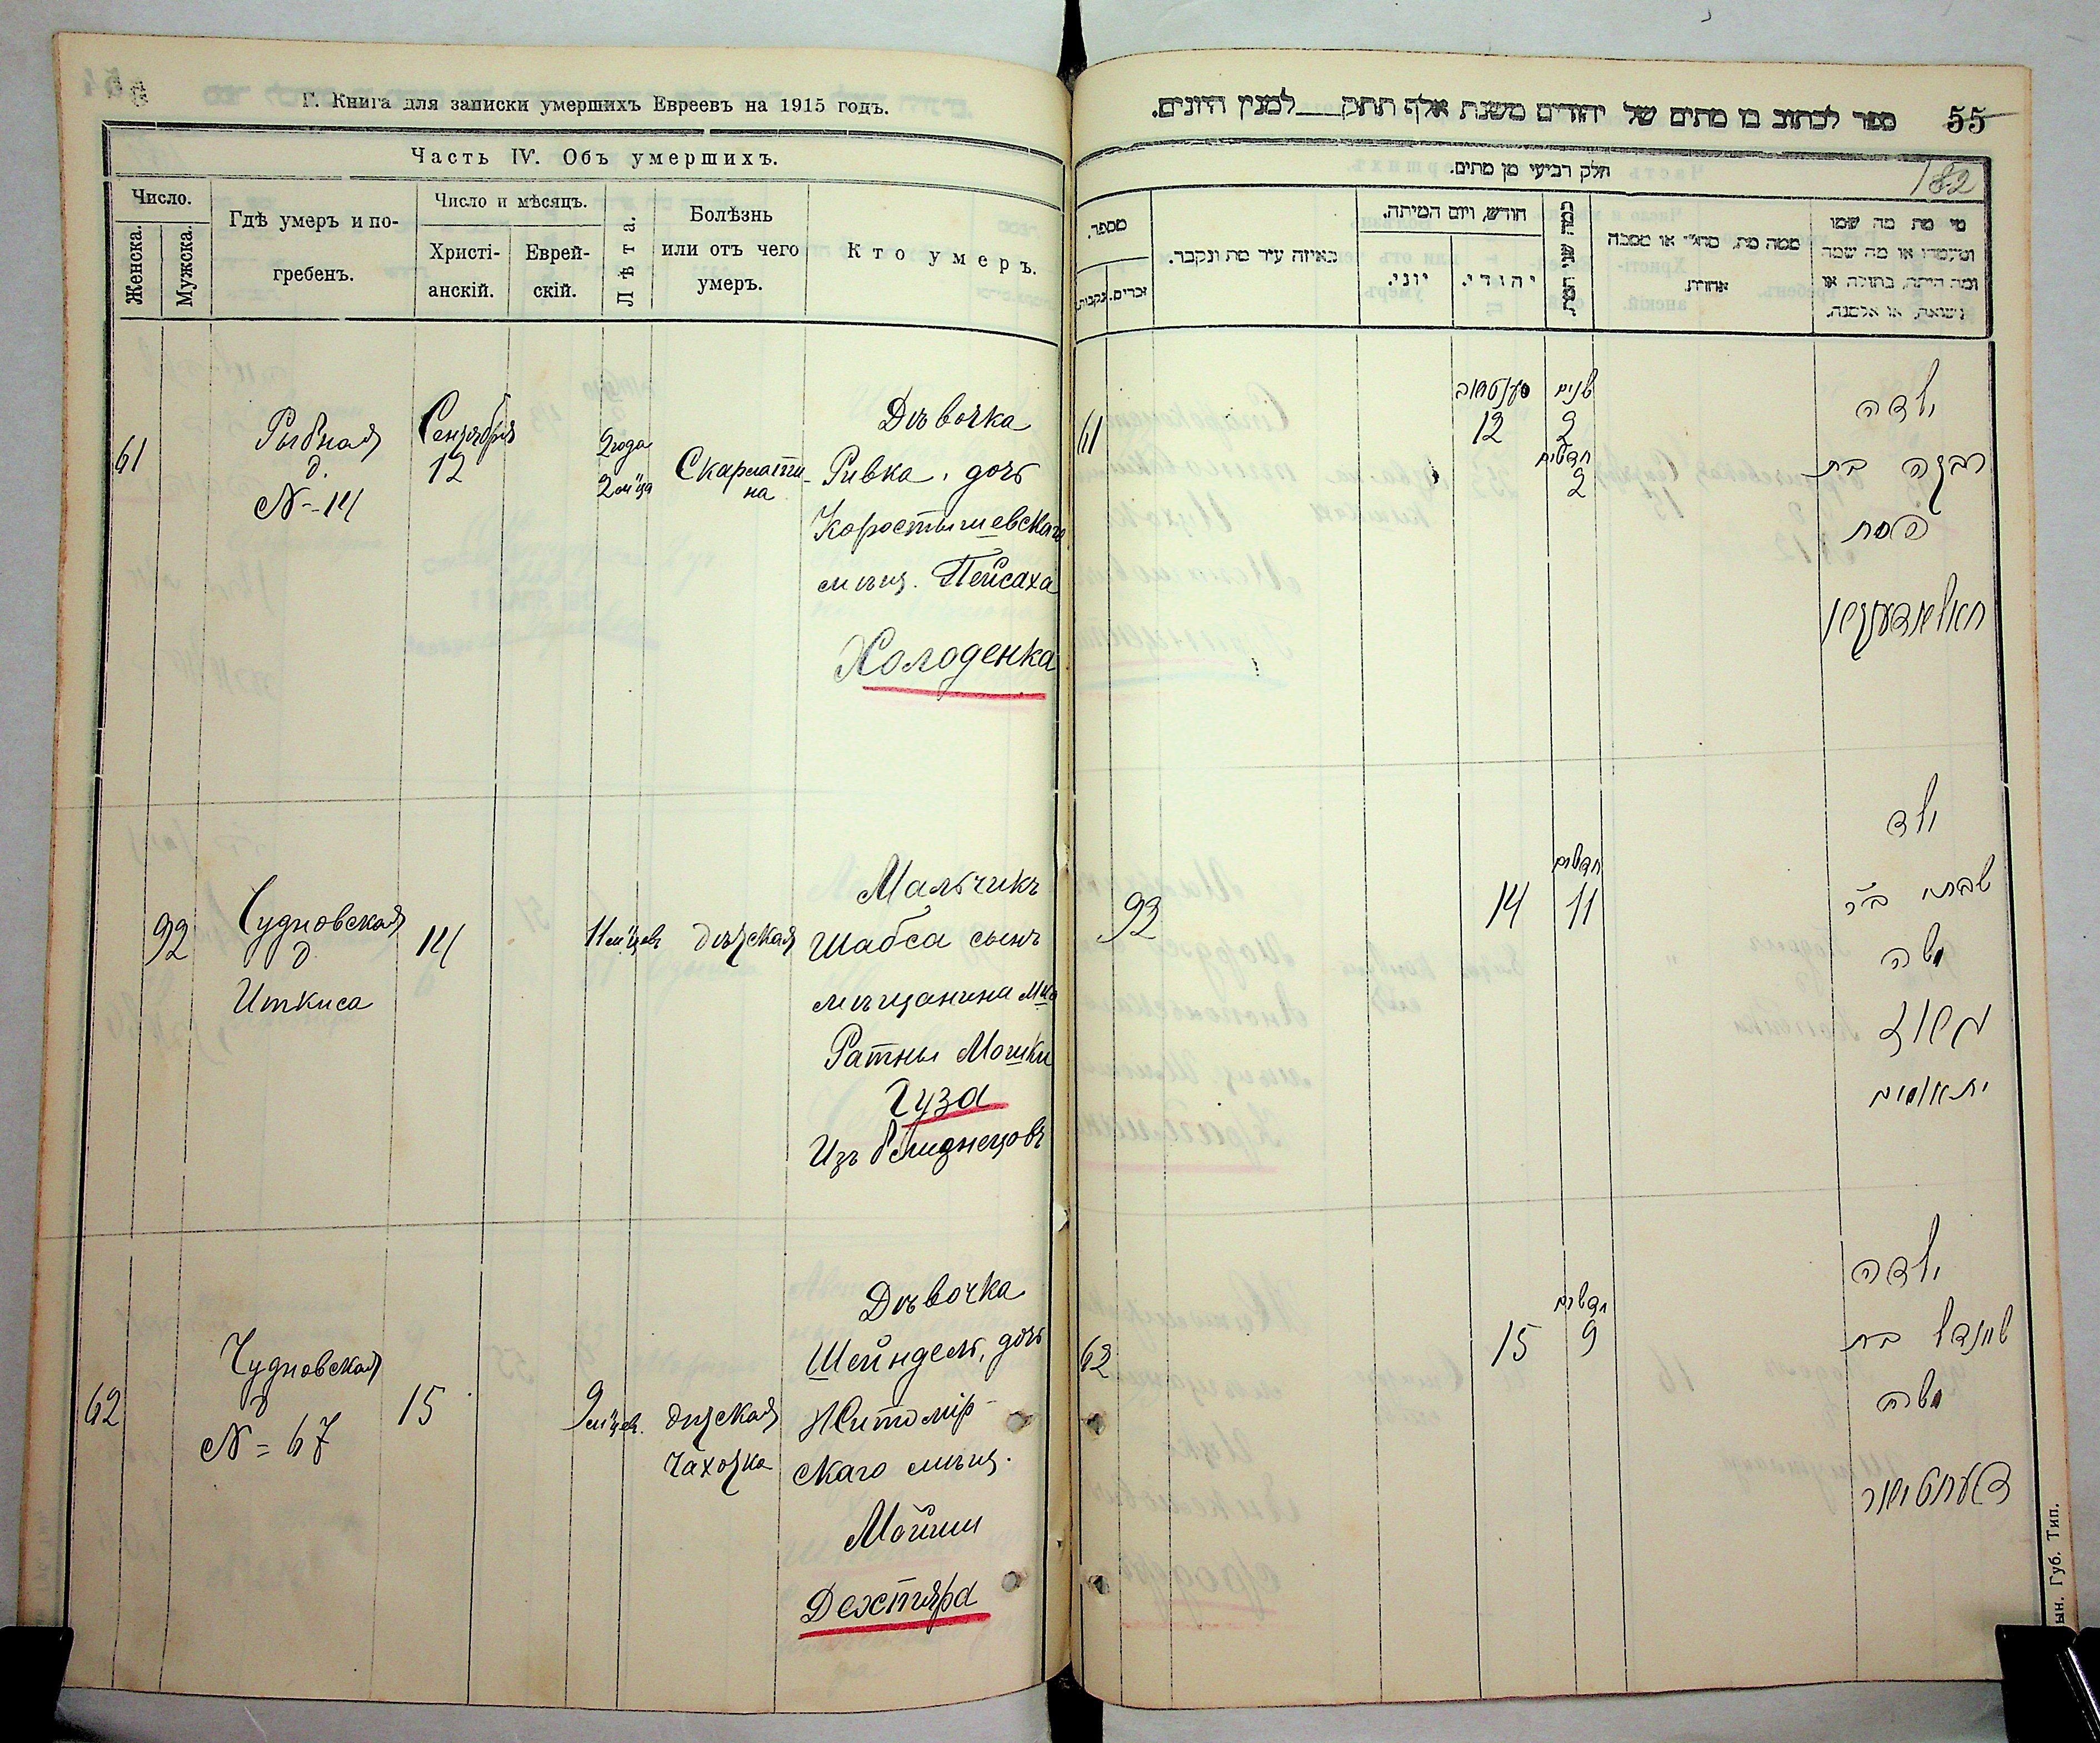 Г. Книга для записки умершихъ Евреевъ на 1915 годъ.
Часть IV. Объ умершихъ.
Число.
Женска.
Мужска.
Гдѣ умеръ и по-
гребенъ.
Число и мѣсяцъ.
Христі-
анскій.
Еврей-
скій.
Лѣта.
Болѣзнь
или отъ чего
умеръ.
Кто умеръ.
61
Рыбная
д.
№ 14
Сентября
12
2 года
2 м-ца
Скарлати-
на
Дѣвочка
Ривка, дочь
Коростышевскаго
мѣщ. Пейсаха
Холоденка
92
Чудновская
д.
Иткиса
14
11 м-цевъ
дѣтская
Мальчикъ
Шабса сынъ
мѣщанина м-ка
Ратны Мошки
Гуза
Изъ бѣженцовъ
62
Чудновская
д
№ = 67
15
9 м-цев.
дѣтская
чахотка
Дѣвочка
Шейндель, дочь
Житомір-
скаго мѣщ.
Мойши
Дехтяра
ספר לכתוב בו מתים של יהודים משנת אלף תתק___למנין היונים.
55
182
חלק רביעי מן מתים.
מספר.
נקבות.
זכרים.
באיזה עיר מת ונקבר.
חודש, ויום המיתה.
יוני.
יהודי.
כמה שני המת
ממה מת, מחלי או מסבה
אחרת.
מי מת מה שמו
ומעמדו או מה שמה
ומה היתה, בתולה או
נשואה, או אלמנה.
61
סענטאב
12
שנים
2
חדשים
2
ילדה
רבקה בת
פסח
חאלאדענקא
92
14
חדשים
11
ילד
שבתי ב״ר
משה
גוז
62
15
חדשים
9
ילדה
שיינדל בת
משה
דעחטיאר
ын. Губ. Тип.